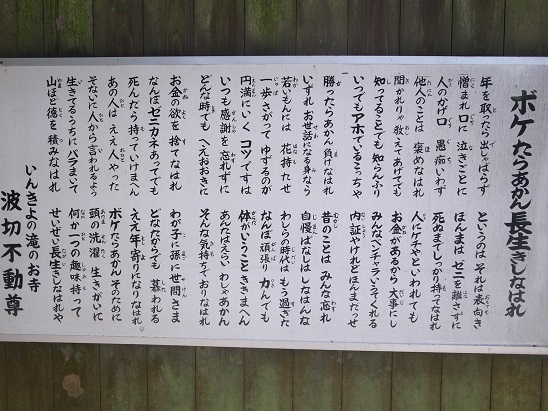 ボケたらあかん長生きしなはれ
年を取ったら出しゃばらず
憎まれ口に泣きごとに
人のかげ口愚痴いわず
他人のことは褒めなはれ
聞かれりゃ教えてあげても
知ってることでも知らんふり
いつでもアホでいるこっちゃ
勝ったらあかん負けなはれ
いずれお世話になる身なら
若いもんには花持たせ
一歩さがってゆずるのが
円満にいくコツですは
いつも感謝を忘れずに
どんな時でもへえおおきに
お金の欲を捨てなはれ
なんぼゼニカネあってても
死んだら持っていけまへん
あの人はええ人やった
そないに人から言われるよう
生きてるうちにバラまいて
山ほど徳を積みなはれ
というのはそれは表向き
ほんまはゼニを離さずに
死ぬまでしっかり持ってなはれ
人にケチやといわれても
お金があるから大事にし
みんなベンチャラいうてくれる
内証やけれどほんまだっせ
昔のことはみんな忘れ
自慢ばなしはしなはんな
わしらの時代はもう過ぎた
なんぼ頑張り力んでも
体がいうことききまへん
あんたはえらいわしゃあかん
そんな気持ちでおりなはれ
わが子に孫に世間さま
どなたからも慕われる
ええ年寄りになりなはれ
ボケたらあかんそのために
頭の洗濯生きがいに
何か一つの趣味持って
せいぜい長生きしなはれや
いんきよの滝のお寺
波切不動尊